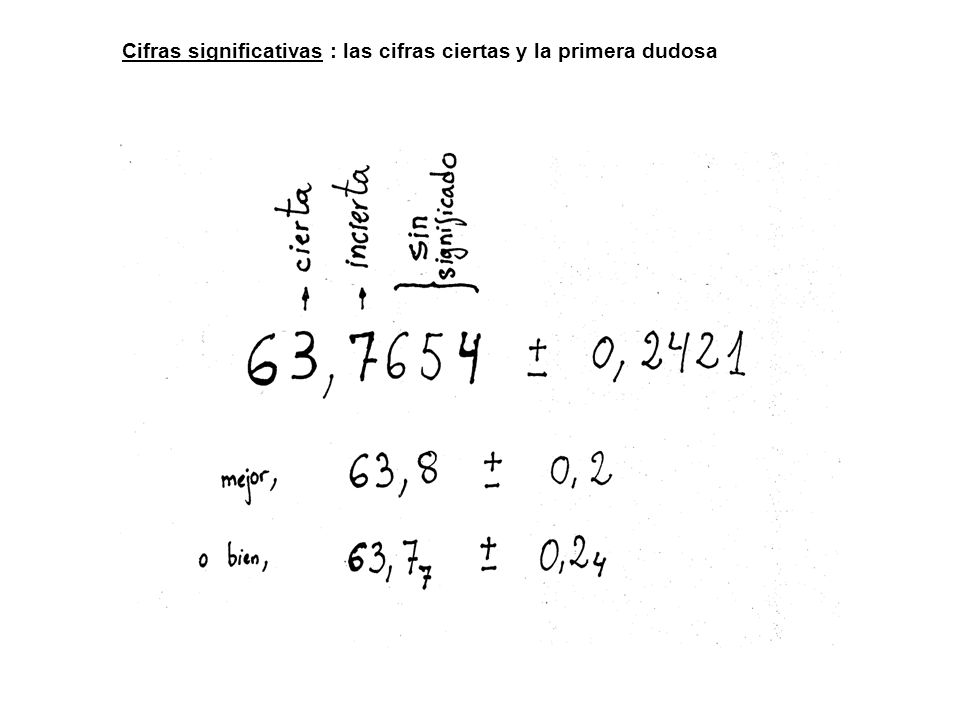 Cifras significativas : las cifras ciertas y la primera dudosa
→ cierta
→ incierta
sin
significado
63,7654 ± 0,2421
mejor, 63,8 ± 0,2
o bien, 63,77 ± 0,24